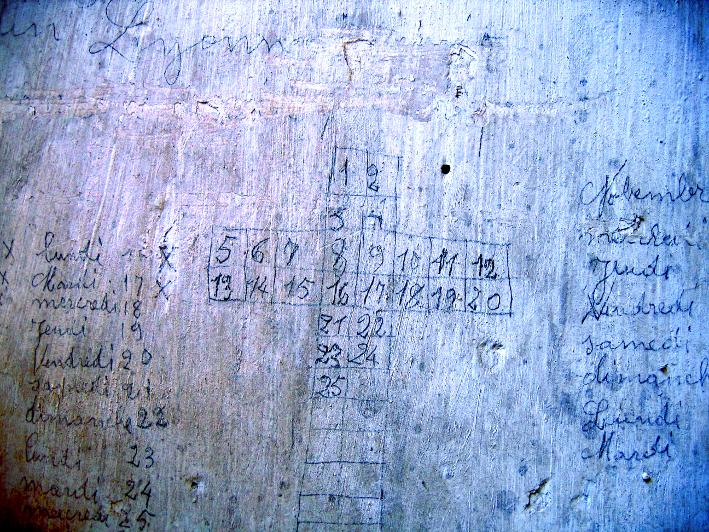 Lyonn
1 2
3
5 6 7 8 9 10 11 12
13 14 15 16 17 18 19 20
21 22
23 24
25
x lundi x
x Mardi 17 x
mercredi 18
Jeudi 19
Vendredi 20
samedi 21
dimanche 22
lundi 23
mardi 24
mercredi 25
Novembre
mercredi
Jeudi
Vendredi
samedi
dimanche
Lundi
Mardi